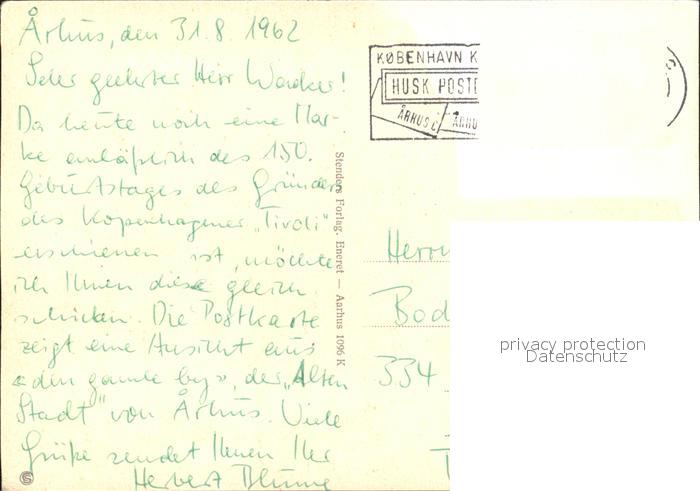 Århus, den 31.8.1962
Sehr geehrter Herr Wacker!
Da heute noch eine Mar-
ke anläßlich des 150.
Geburtstages des Gründers
des Kopenhagener „Tivoli"
erschienen ist, möchte
ich Ihnen diese gleich
schicken. Die Postkarte
zeigt eine Ansicht aus
«den gamle by», der „Alten
Stadt" von Århus. Viele
Grüße sendet Ihnen Ihr
Herbert Blume
Stenders Forlag. Eneret — Aarhus 1096 K
KØBENHAVN K
HUSK POST
ÅRHUS C
ÅRHU
Herrn
Bod
334
privacy protection
Datenschutz